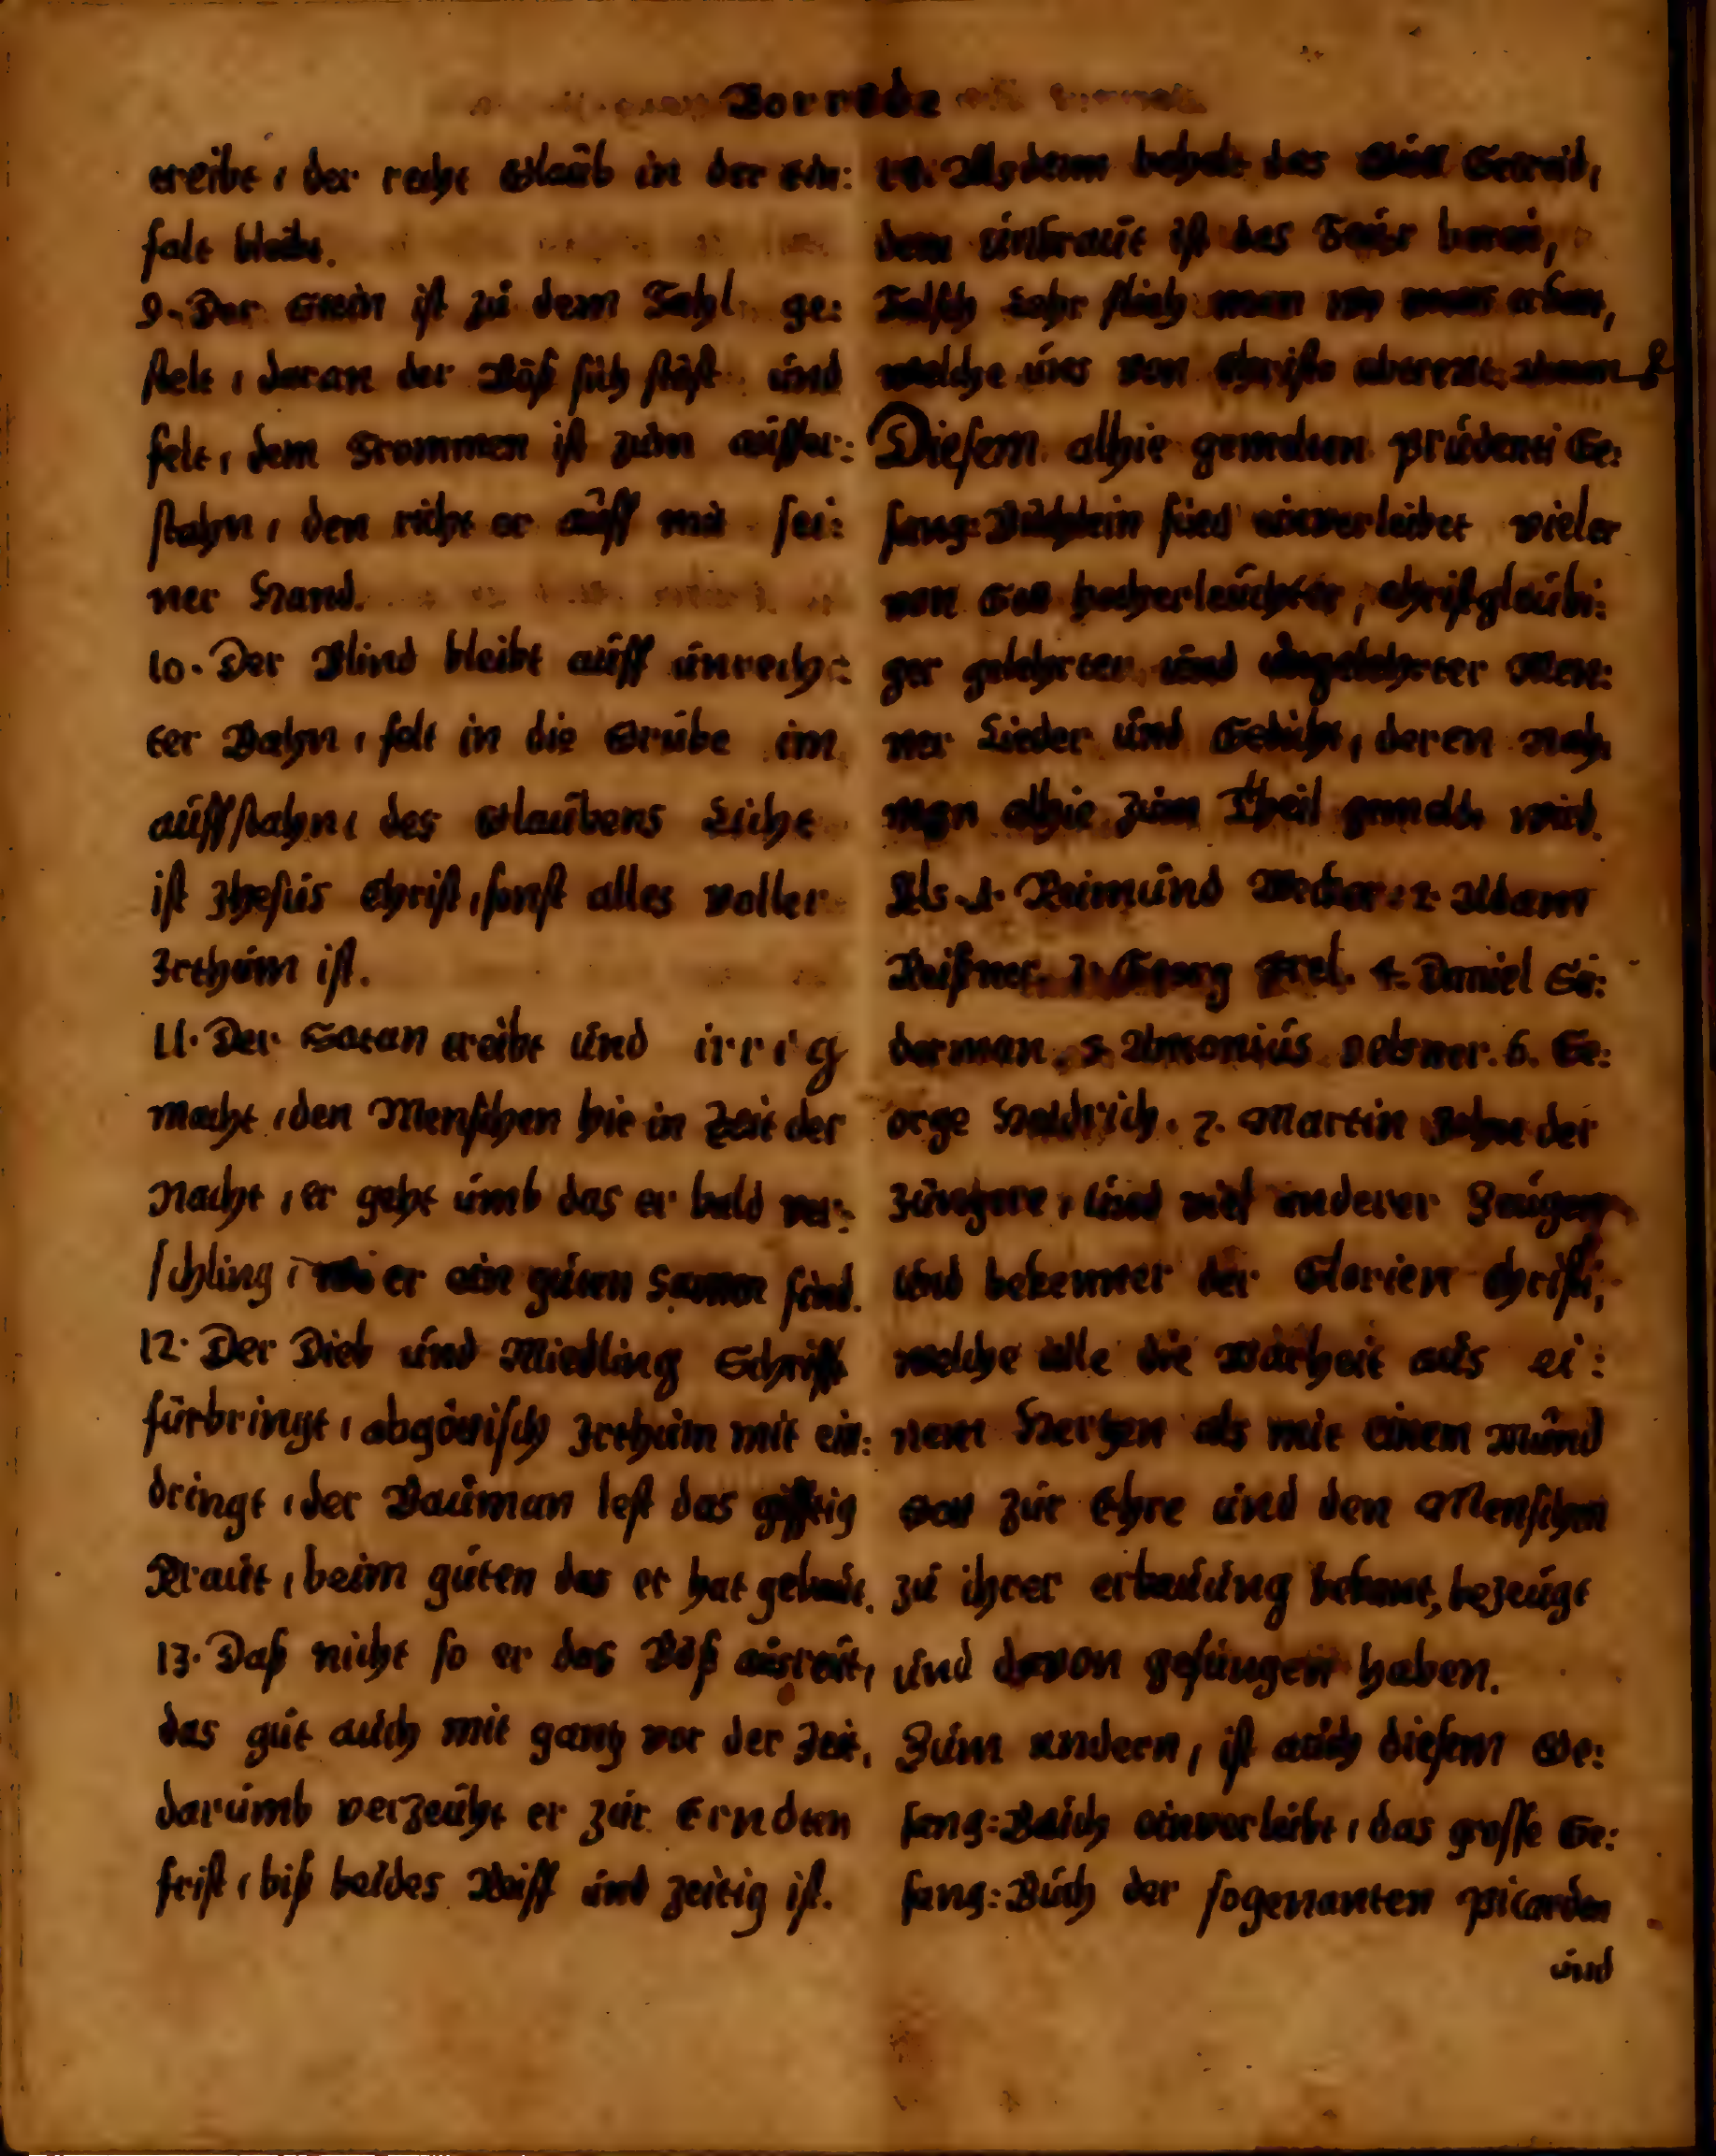 Vorrede
treibt, der recht Glaub in der Ein:
falt bleibt.
9. Der Stein ist zu dem Fahl ge:
stelt, daran der Böß sich stöst und
felt, dem Frommen ist zum auffer:
stahn, den richt er auff mit sei:
ner Hand.
10. Der Blind bleibt auff unrech:
ter Bahn, felt in die Grube im
auffstahn, des Glaubens Licht
ist Jhesus Christ, sonst alles voller
Irthum ist.
11. Der Satan treibt und irrig
macht, den Menschen hie in Zeit der
Nacht, er geht umb das er bald ver:
schling, wo er ein guten Samen find.
12. Der Dieb und Miedling Schrifft
fürbringt, abgöttisch Irthum mit ein:
dringt, der Bauman lest das gifftig
Kraut, beim guten das er hat gebaut.
13. Daß nicht so er das Böß ausreüt,
das gut auch mit gantz vor der Zeit,
darumb verzeüht er zur Erndten
frist, biß beides Reiff und zeitig ist.
14. Alsdenn behelt das Getreid,
dem unkraut ist das Feüer bereit,
Falsch Lehr flieh man
welche uns von Christo
Diesem alhie gemelten Prudenti Ge:
sang:Büchlein sind einverleibet vieler
von Gott hocherleuchter, Christgleubi:
ger gelehrter und ungelehrter Men:
ner Lieder und Gedicht, deren nah:
men alhie zum Theil gemeldt wird.
Als 1. Reimund Wecker. 2. Adam
Reißner. 3. Georg Frel. 4. Daniel Su:
derman. 5. Antonius Oelsner. 6. Ge:
orge Heidrich. 7. Martin John der
Jungere, und viel anderer Zeugen
und bekenner der Glorien Christi,
welche alle die Warheit aus ei:
nem Hertzen als mit einem Mund
Gott zur Ehre und den Menschen
zu ihrer erbauung bekant, bezeugt
und davon gesungen haben.
Zum andern, ist auch diesem Ge:
sang:Buich einverleibt, das grosse Ge:
sang:Buch der sogenanten Picarden
und